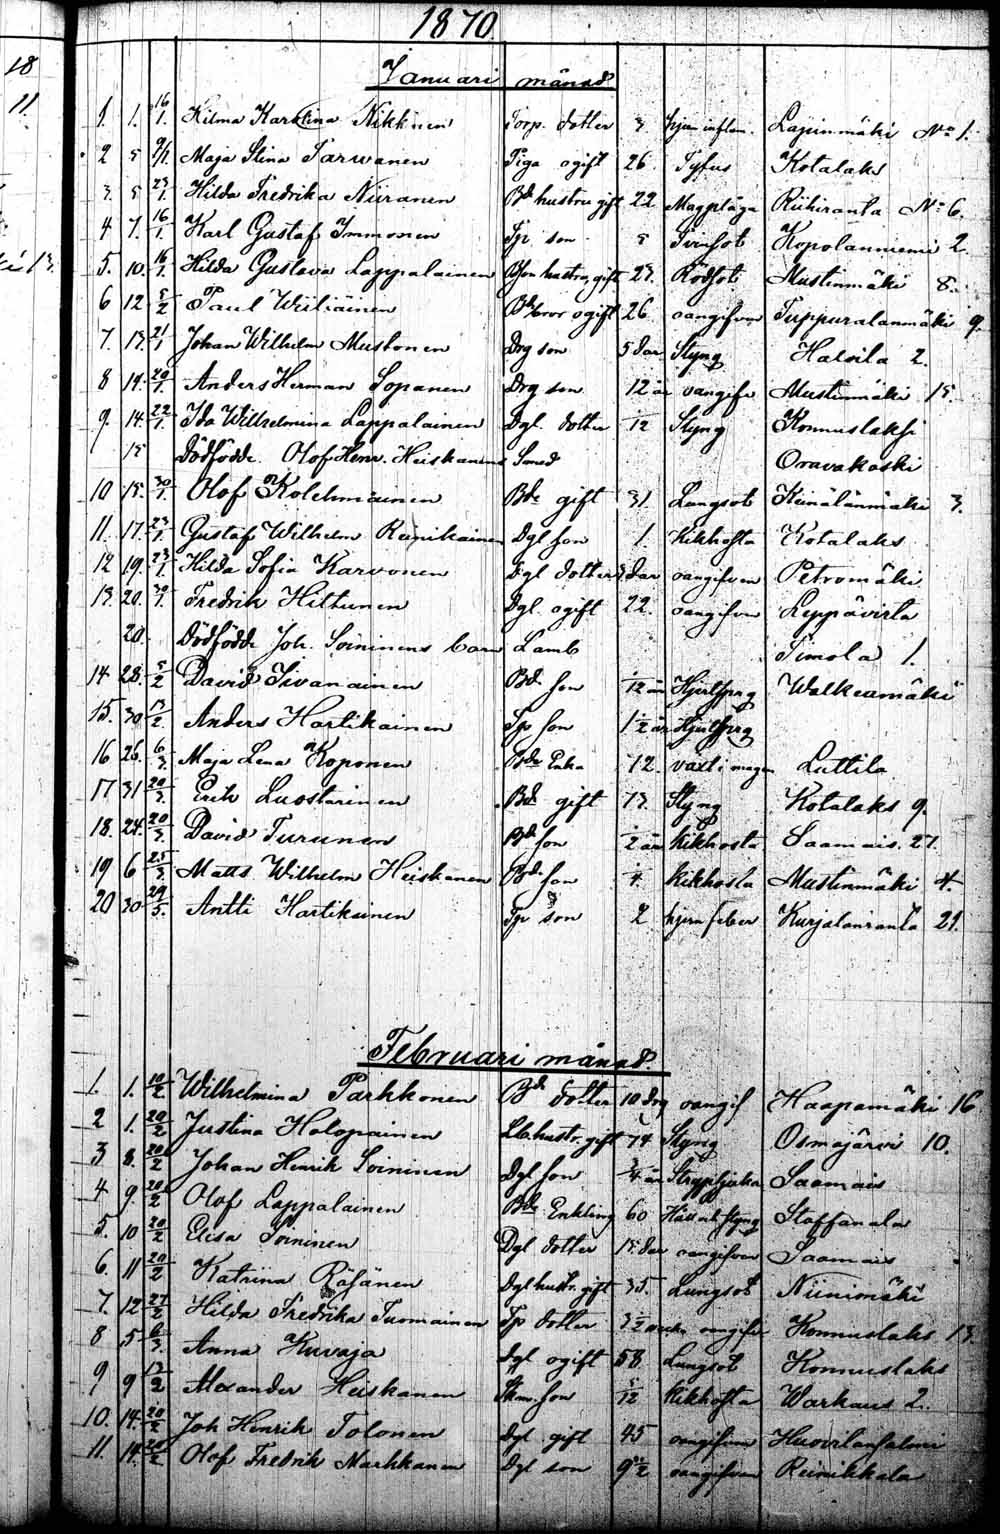 1870.
18
11.
Januari månad.
1. 1. 16/1. Hilma Karolina Nikkinen Torp. dotter 3 hjern inflam. Lajunmäki No 1.
2 5 9/1. Maja Stina Tarwanen Piga ogift 26. Tyfus Kotalaks
3. 5 23/1 Hilda Fredrika Niiranen Bd hustru gift 22. Magplåga Riihiranta No 6.
4 7. 16/1. Karl Gustaf Immonen Tp son 5 Tvinsot Kopolanniemi 2.
5. 10. 16/1. Hilda Gustava Lappalainen hustru, gift 27. Rödsot Mustinmäki 8.
6 12 5/2 Paul Wiiliäinen Bd bror ogift 26. oangifven Tuppuralanmäki 9.
7. 13. 21/1 Johan Wilhelm Mustonen Drg son 5 dar Styng Halvila 2.
8 14. 20/1. Anders Herman Sopanen Drg son 12 år oangifv Mustinmäki 15.
9. 14. 22/1. Ida Wilhelmina Lappalainen Dgl. dotter 12 Styng Konnuslaksi
15 Dödfödde Olof Henr. Heiskanens Smed Oravakoski
10 15. 30/1. Olof Kolehmainen Bde gift 31. Lungsot Keinälänmäki 3.
11. 17. 23/1. Gustaf Wilhelm Reinikainen Dgl son 1. Kikhosta Kotalaks
12 19. 23/1. Hilda Sofia Karvonen Dgl dotter dar oangifven Petromäki
13. 20. 30/1. Fredrik Hiltunen Dgl. ogift 22. oangifven Leppävirta
20. Dödfödde Joh. Soininens barn Lamb Timola 1.
14 28. 5/2 David Sivanainen Bd. son Hjertsprg Walkeamäki
15. 30 13/2 Anders Hartikainen Tp son 1 1/2 år Hjertsprg
16 26. 6/3. Maja Lena Koponen Bde Enka 72. växt i magen Luttila
17 31 20/3. Erik Luostarinen Bd gift 73. Styng Kotalaks 9.
18. 24. 20/3. David Turunen Bd son 1/2 år Kikhosta Saamais. 27.
19 6 25/3 Matts Wilhelm Heiskanen Bd son 4. Kikhosta Mustinmäki 4.
20 30 29/5. Antti Hartikainen Tp son 2 hjernfeber Kurjalanranta 21.
Februari månad.
1. 1. 10/2 Wilhelmina Parkkonen Bd dotter 10 dag oangif Haapamäki 16
2 1. 20/2 Justina Holopainen hustr. gift 74. Styng Osmajärvi 10.
3 8. 20/2 Johan Henrik Soininen Dgl son 3/4 år Strypsjuka Saamais
4 9. 20/2 Olof Lappalainen Bde Enkling 60 Håll och styng Staffanala
5. 10 20/2 Elisa Soininen Dgl dotter 15. dar oangifven Saamais
6. 11 20/2 Katriina Räsänen Dgl hustr. gift 35. Lungsot Niinimäki
7. 12 27/2 Hilda Fredrika Tuomainen Tp dotter oangifv Konnuslaks 13.
8 5 6/3. Anna Kuvaja Dgl ogift 58 Lungsot Konnuslaks
9 9 13/2 Alexander Heiskanen son 5/12 Kikhosta Warkaus 2.
10. 14. 20/2 Joh Henrik Tolonen Dgl gift 45 oangifven Huovilansalmi
11. 14. 20/2 Olof Fredrik Markkanen Dgl son oangifven Reinikkala